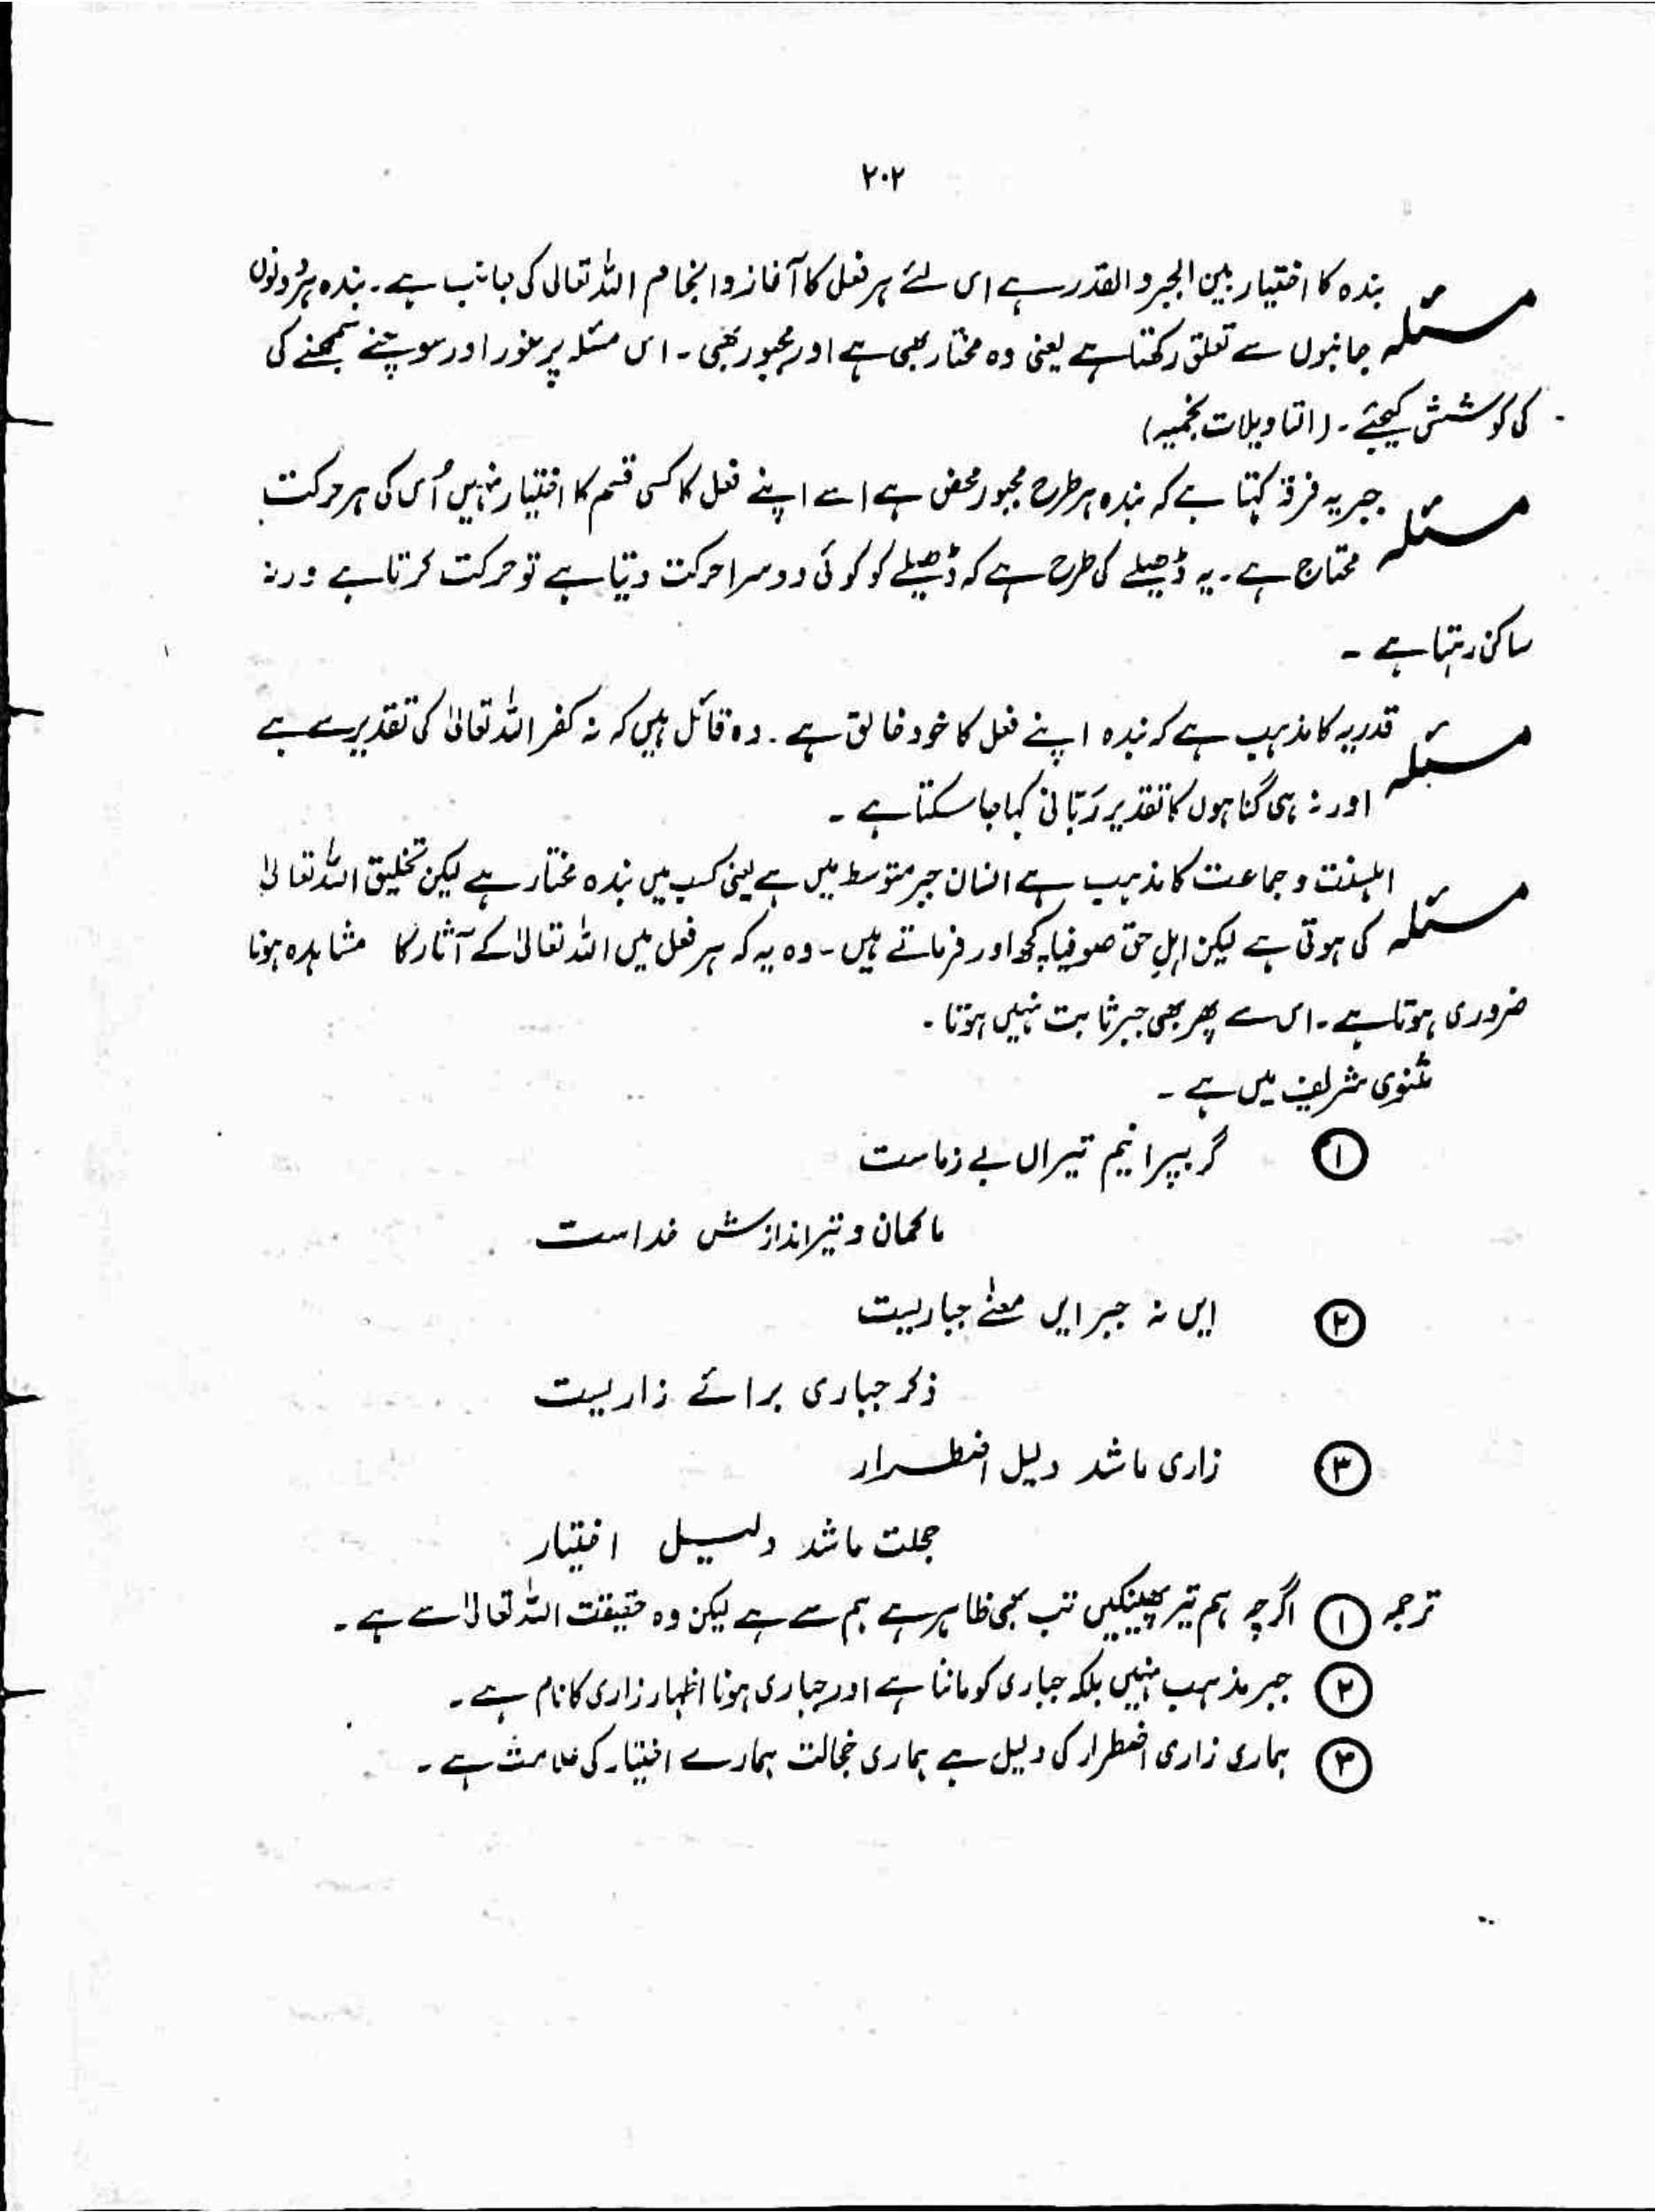 ۲۰۲
مسئلہ بندہ کا اختیار بین الجبر والقدر ہے اسی لئے ہر فعل کا آغاز و انجام اللہ تعالی کی جانب ہے۔ بندہ ہر دونوں
جانبوں سے تعلق رکھتا ہے یعنی وہ مختار بھی ہے اور مجبور بھی۔ اس مسئلہ پر غور اور سوچنے سمجھنے کی
کی کوشش کیجئے۔ (التاویلات نجمیہ)
مسئلہ جبریہ فرقہ کہتا ہے کہ بندہ ہر طرح مجبور محض ہے اسے اپنے فعل کا کسی قسم کا اختیار نہیں اُس کی ہر حرکت
محتاج ہے۔ یہ ڈھیلے کی طرح ہے کہ ڈھیلے کو کوئی دوسرا حرکت دیتا ہے تو حرکت کرتا ہے ورنہ
ساکن رہتا ہے۔
مسئلہ قدریہ کا مذہب ہے کہ بندہ اپنے فعل کا خود خالق ہے۔ وہ قائل ہیں کہ نہ کفر اللہ تعالیٰ کی تقدیر سے ہے
اور نہ ہی گناہوں کا تقدیر رَبّانی کہا جا سکتا ہے۔
مسئلہ اہلسنت و جماعت کا مذہب ہے انسان جبر متوسط میں ہے یعنی کسب میں بندہ مختار ہے لیکن تخلیق اللہ تعالیٰ
کی ہوتی ہے لیکن اہلِ حق صوفیا کچھ اور فرماتے ہیں۔ وہ یہ کہ ہر فعل میں اللہ تعالیٰ کے آثار کا مشاہدہ ہونا
ضروری ہوتا ہے۔ اس سے پھر بھی جبر ثابت نہیں ہوتا۔
مثنوی شریف میں ہے۔
① گر بپرانیم تیراں بے زماست
ما کمان و تیر اندازش خداست
② ایں نہ جبر ایں معنیٰ جباریست
ذکر جباری برائے زاریست
③ زاری ما شد دلیل اضطرار
خجلت ما شد دلیل اختیار
ترجمہ ① اگرچہ ہم تیر پھینکیں تب بھی ظاہر ہے ہم سے ہے لیکن وہ حقیقت اللہ تعالیٰ سے ہے۔
② جبر مذہب نہیں بلکہ جباری کو ماننا ہے اور جباری ہونا اظہار زاری کا نام ہے۔
③ ہماری زاری اضطرار کی دلیل ہے ہماری خجالت ہمارے اختیار کی علامت ہے۔